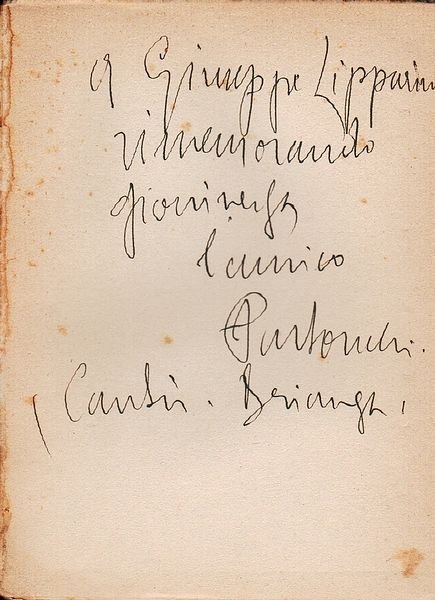 A Giuseppe Lipparini
rimemorando
giovinezza
l'amico
Pastonchi.
(Cantù. Brianza.